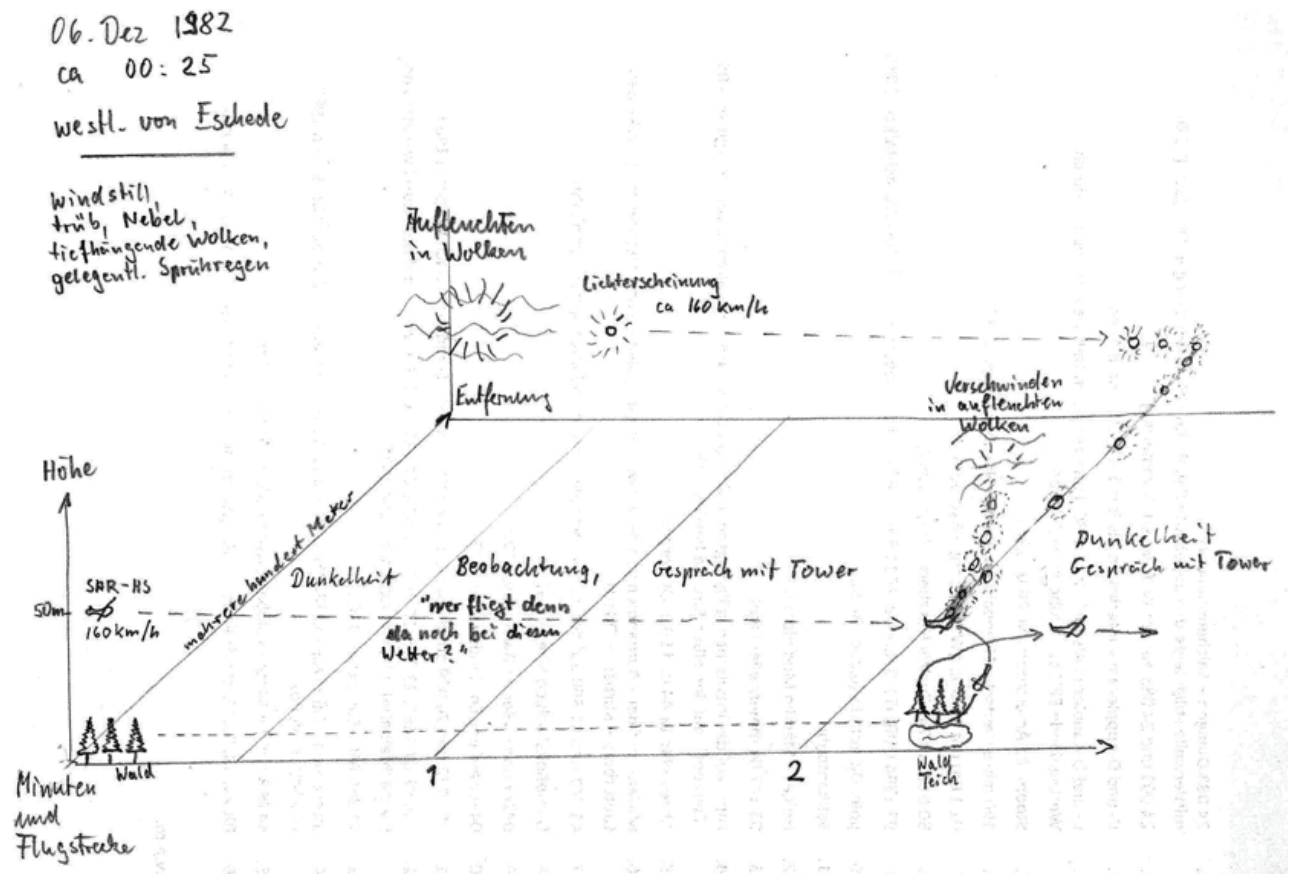 06. Dez 1982
ca 00:25
westl. von Eschede
windstill,
trüb, Nebel,
tiefhängende Wolken,
gelegentl. Sprühregen
Aufleuchten
in Wolken
Lichterscheinung
ca 160 km/h
Entfernung
Verschwinden
in aufleuchten
Wolken
Höhe
mehrere hundert Meter
SAR-HS
50m
160 km/h
Dunkelheit
Beobachtung,
"wer fliegt denn
da noch bei diesem
Wetter?"
Gespräch mit Tower
Dunkelheit
Gespräch mit Tower
Wald
1
2
Wald
Teich
Minuten
und
Flugstrecke